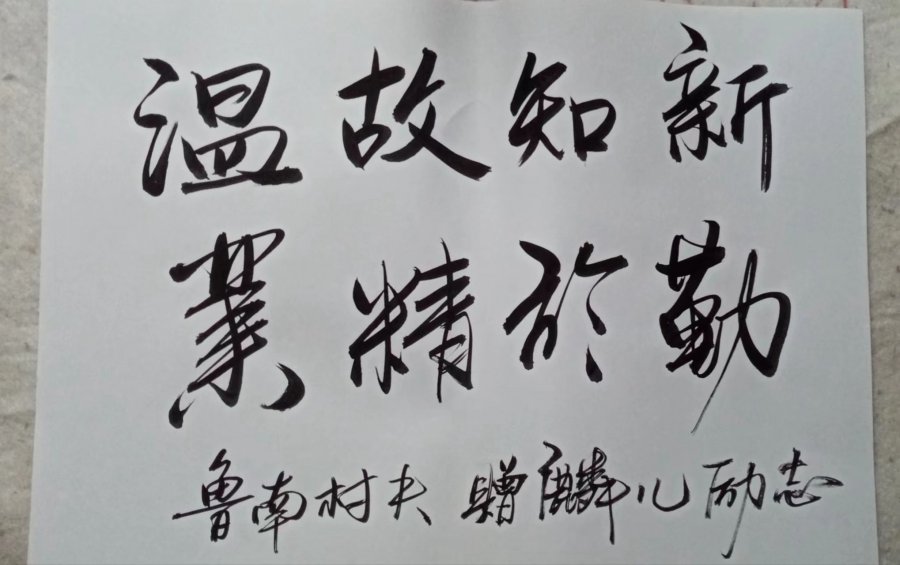 温故知新
業精於勤
鲁南村夫 赠麟儿励志